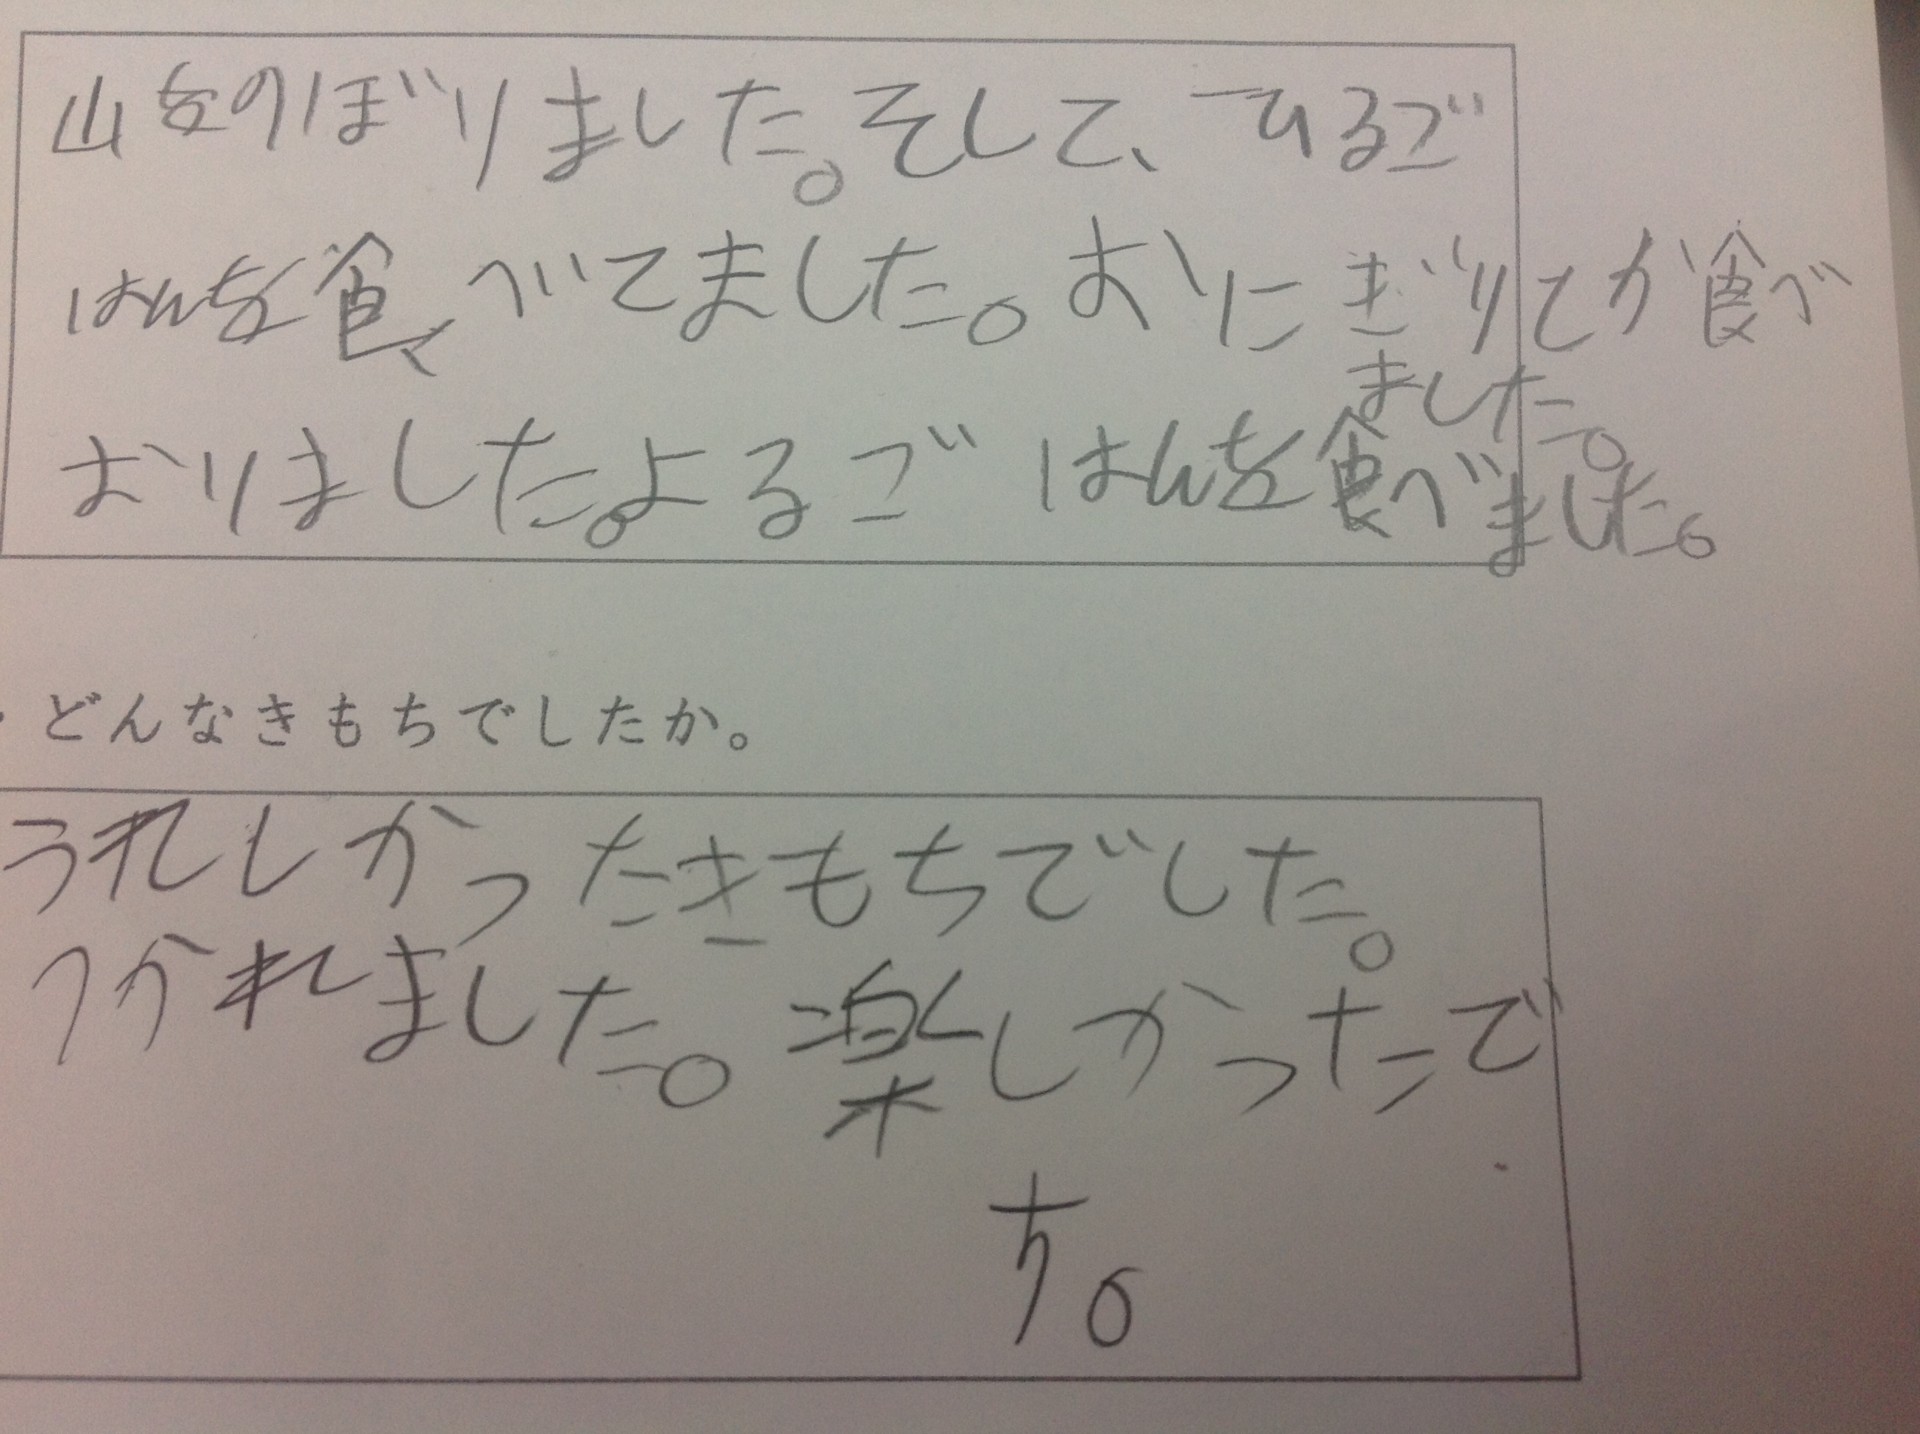 山をのぼりました。そして、ひるご
はんを食べてました。おにぎりとか食べ
ました。
おりました。よるごはんを食べました。
・どんなきもちでしたか。
うれしかったきもちでした。
つかれました。楽しかったで
す。